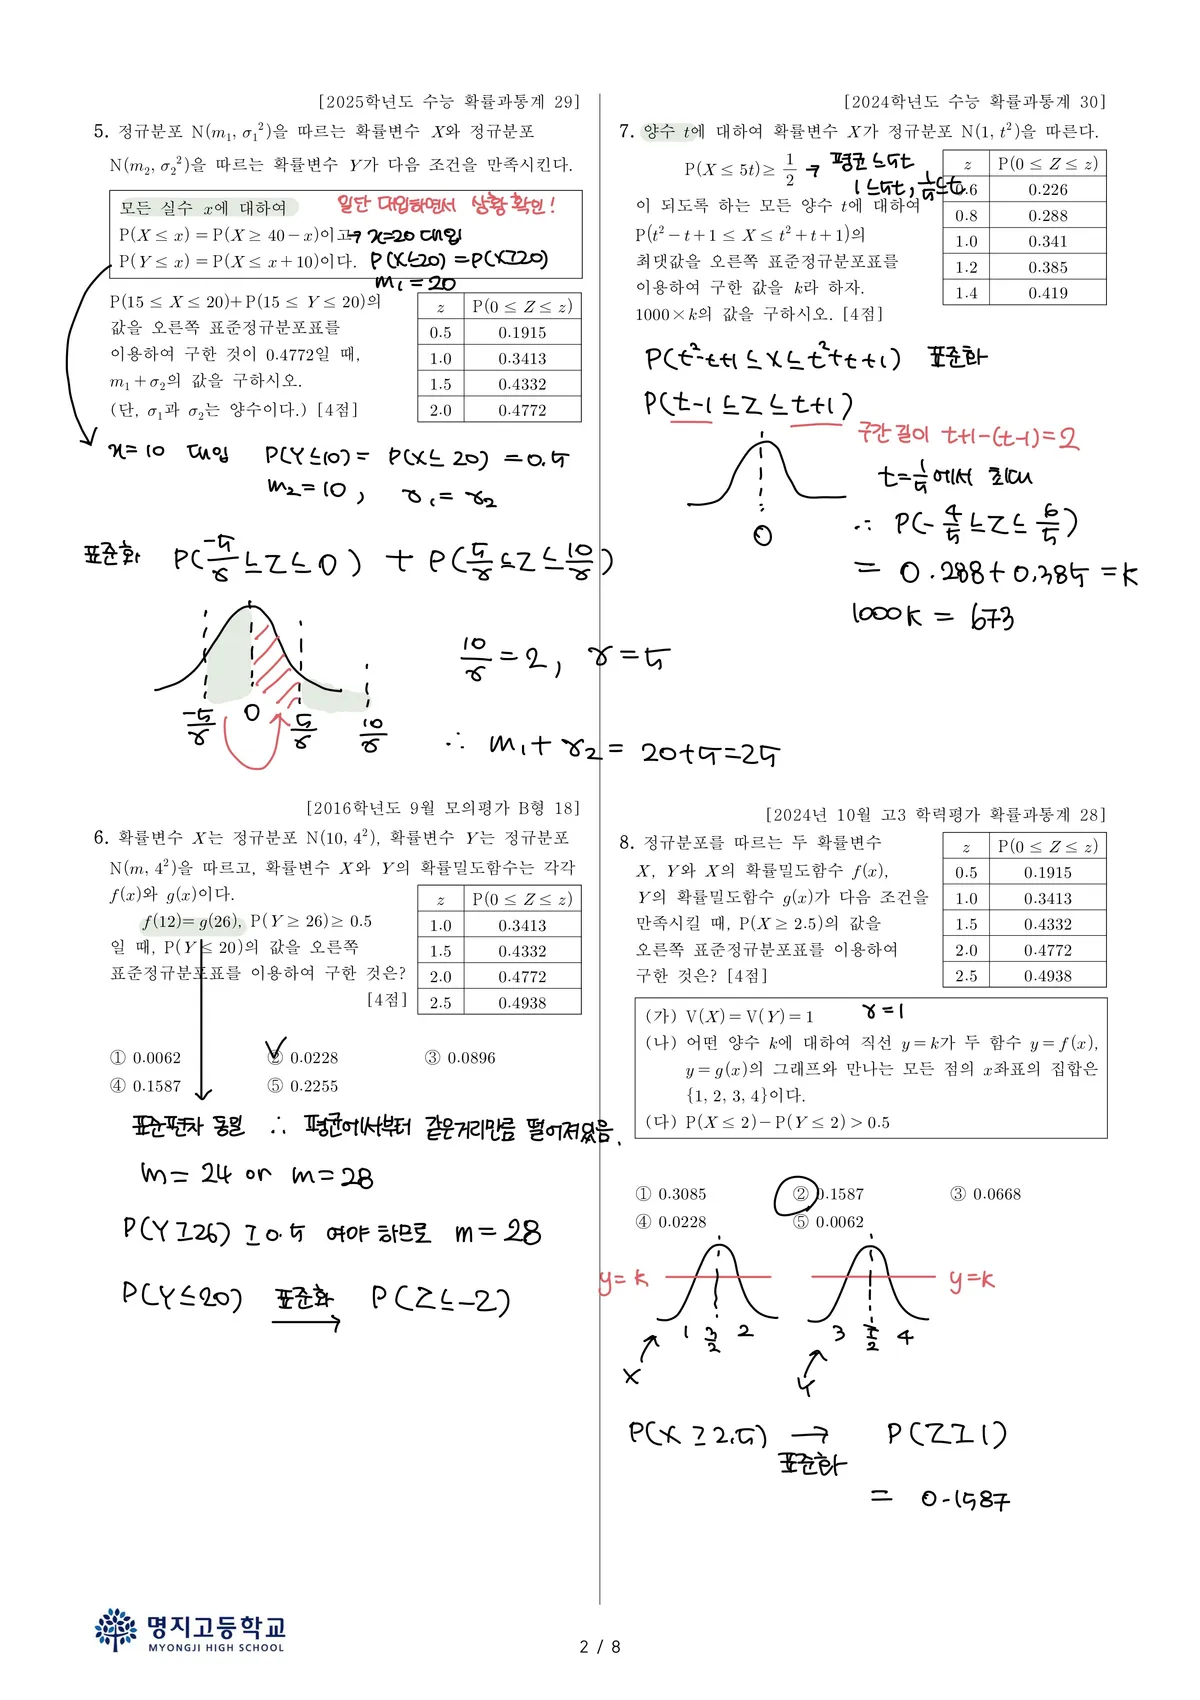 [2025학년도 수능 확률과통계 29]
5. 정규분포 N(m₁, σ₁²)을 따르는 확률변수 X와 정규분포
N(m₂, σ₂²)을 따르는 확률변수 Y가 다음 조건을 만족시킨다.
모든 실수 x에 대하여 일단 대입하면서 상황 확인!
P(X ≤ x) = P(X ≥ 40 − x)이고 → x=20 대입
P(Y ≤ x) = P(X ≤ x+10)이다. P(X≤20) = P(X≥20)
m₁ = 20
P(15 ≤ X ≤ 20) + P(15 ≤ Y ≤ 20)의
값을 오른쪽 표준정규분포표를
이용하여 구한 것이 0.4772일 때,
m₁ + σ₂의 값을 구하시오.
(단, σ₁과 σ₂는 양수이다.) [4점]
z P(0 ≤ Z ≤ z)
0.5 0.1915
1.0 0.3413
1.5 0.4332
2.0 0.4772
x=10 대입 P(Y≤10) = P(X≤ 20) = 0.5
m₂=10, σ₁= σ₂
표준화 P(-5/σ ≤ Z ≤ 0) + P(5/σ ≤ Z ≤ 10/σ)
10/σ = 2, σ = 5
-5/σ 0 5/σ 10/σ
∴ m₁ + σ₂ = 20+5=25
[2016학년도 9월 모의평가 B형 18]
6. 확률변수 X는 정규분포 N(10, 4²), 확률변수 Y는 정규분포
N(m, 4²)을 따르고, 확률변수 X와 Y의 확률밀도함수는 각각
f(x)와 g(x)이다.
f(12) = g(26), P(Y ≥ 26) ≥ 0.5
일 때, P(Y ≤ 20)의 값을 오른쪽
표준정규분포표를 이용하여 구한 것은?
[4점]
z P(0 ≤ Z ≤ z)
1.0 0.3413
1.5 0.4332
2.0 0.4772
2.5 0.4938
① 0.0062 ② 0.0228 ③ 0.0896
④ 0.1587 ⑤ 0.2255
표준편차 동일 ∴ 평균에서부터 같은거리만큼 떨어져있음.
m = 24 or m=28
P(Y≥26) ≥ 0.5 여야 하므로 m = 28
P(Y≤20) 표준화 → P(Z≤-2)
[2024학년도 수능 확률과통계 30]
7. 양수 t에 대하여 확률변수 X가 정규분포 N(1, t²)을 따른다.
P(X ≤ 5t) ≥ 1/2 → 평균 ≤5t
1≤5t, 1/5≤t
이 되도록 하는 모든 양수 t에 대하여
P(t² − t + 1 ≤ X ≤ t² + t + 1)의
최댓값을 오른쪽 표준정규분포표를
이용하여 구한 값을 k라 하자.
1000×k의 값을 구하시오. [4점]
z P(0 ≤ Z ≤ z)
0.6 0.226
0.8 0.288
1.0 0.341
1.2 0.385
1.4 0.419
P(t²-t+1 ≤ X ≤ t²+t+1) 표준화
P(t-1 ≤ Z ≤ t+1)
구간 길이 t+1-(t-1)=2
t=1/5에서 최대
0
∴ P(-4/5 ≤ Z ≤ 6/5)
= 0.288+0.385 = k
1000K = 673
[2024년 10월 고3 학력평가 확률과통계 28]
8. 정규분포를 따르는 두 확률변수
X, Y와 X의 확률밀도함수 f(x),
Y의 확률밀도함수 g(x)가 다음 조건을
만족시킬 때, P(X ≥ 2.5)의 값을
오른쪽 표준정규분포표를 이용하여
구한 것은? [4점]
z P(0 ≤ Z ≤ z)
0.5 0.1915
1.0 0.3413
1.5 0.4332
2.0 0.4772
2.5 0.4938
(가) V(X) = V(Y) = 1 σ=1
(나) 어떤 양수 k에 대하여 직선 y = k가 두 함수 y = f(x),
y = g(x)의 그래프와 만나는 모든 점의 x좌표의 집합은
{1, 2, 3, 4}이다.
(다) P(X ≤ 2) − P(Y ≤ 2) > 0.5
① 0.3085 ② 0.1587 ③ 0.0668
④ 0.0228 ⑤ 0.0062
y= k y=k
1 3/2 2 3 7/2 4
X Y
P(X ≥ 2.5) → P(Z≥1)
표준화
= 0.1587
명지고등학교
MYONGJI HIGH SCHOOL
2 / 8